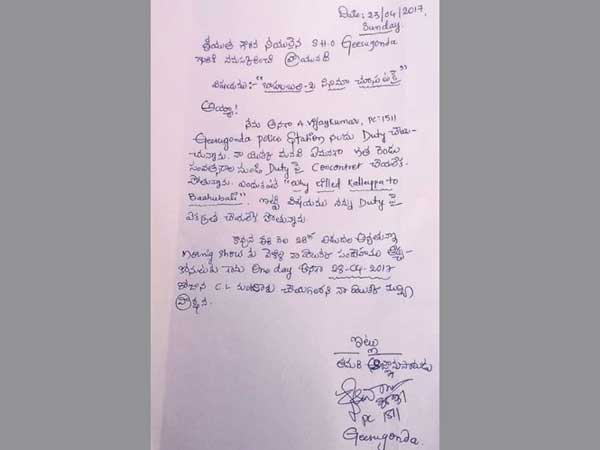 తేది: 23/04/2017,
Sunday.
శ్రీయుత గౌరవ నీయులైన S.H.O Geesugonda
గారికి నమస్కరించి వ్రాయునది
విషయము:- "బాహుబలి-2 సినిమా చూసుటకై"
అయ్యా!
నేను అనగా A Vijaykumar, PC-1511
Geesugonda police Station నందు Duty చేయు-
చున్నాను. నా యొక్క మనవి ఏమనగా గత రెండు
సంవత్సరాల నుండి Duty పై Concentret చేయలేక
పోతున్నాను. ఎందుకంటే "Why Killed Kattappa to
Baahubali". ఇట్టి విషయము నన్ను Duty పై
ఏకాగ్రత చేయలేక పోతున్నాను.
కావున ఈ నెల 28th విడుదల అవుతున్నా
Morning Show కు వెళ్ళి నా యొక్క సందేహము తీర్చు-
కొనుటకు గాను One day అనగా 28-04-2017
రోజున C.L మంజూరు చేయగలరని నా యొక్క
ప్రార్థన.
ఇట్లు
తమరి
PC 1511
Geesugonda.